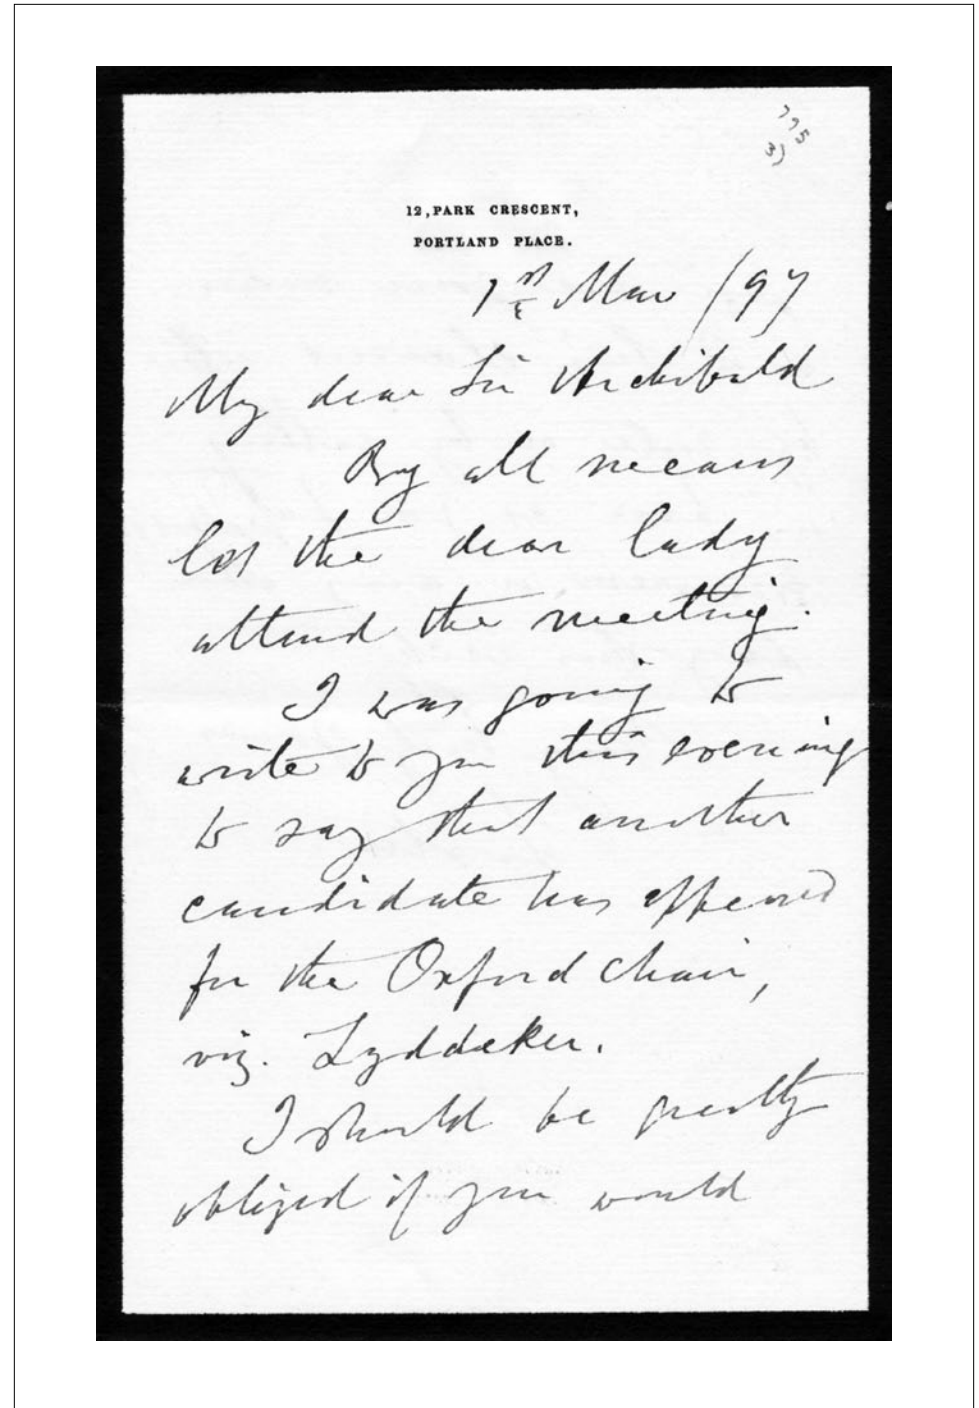 775
3)
12, PARK CRESCENT,
PORTLAND PLACE.
1st Mar /97
My dear Sir Archibald
By all means
let the dear lady
attend the meeting.
I was going to
write to you this evening
to say that another
candidate has appeared
for the Oxford Chair,
viz. Lyddeker.
I should be greatly
obliged if you would